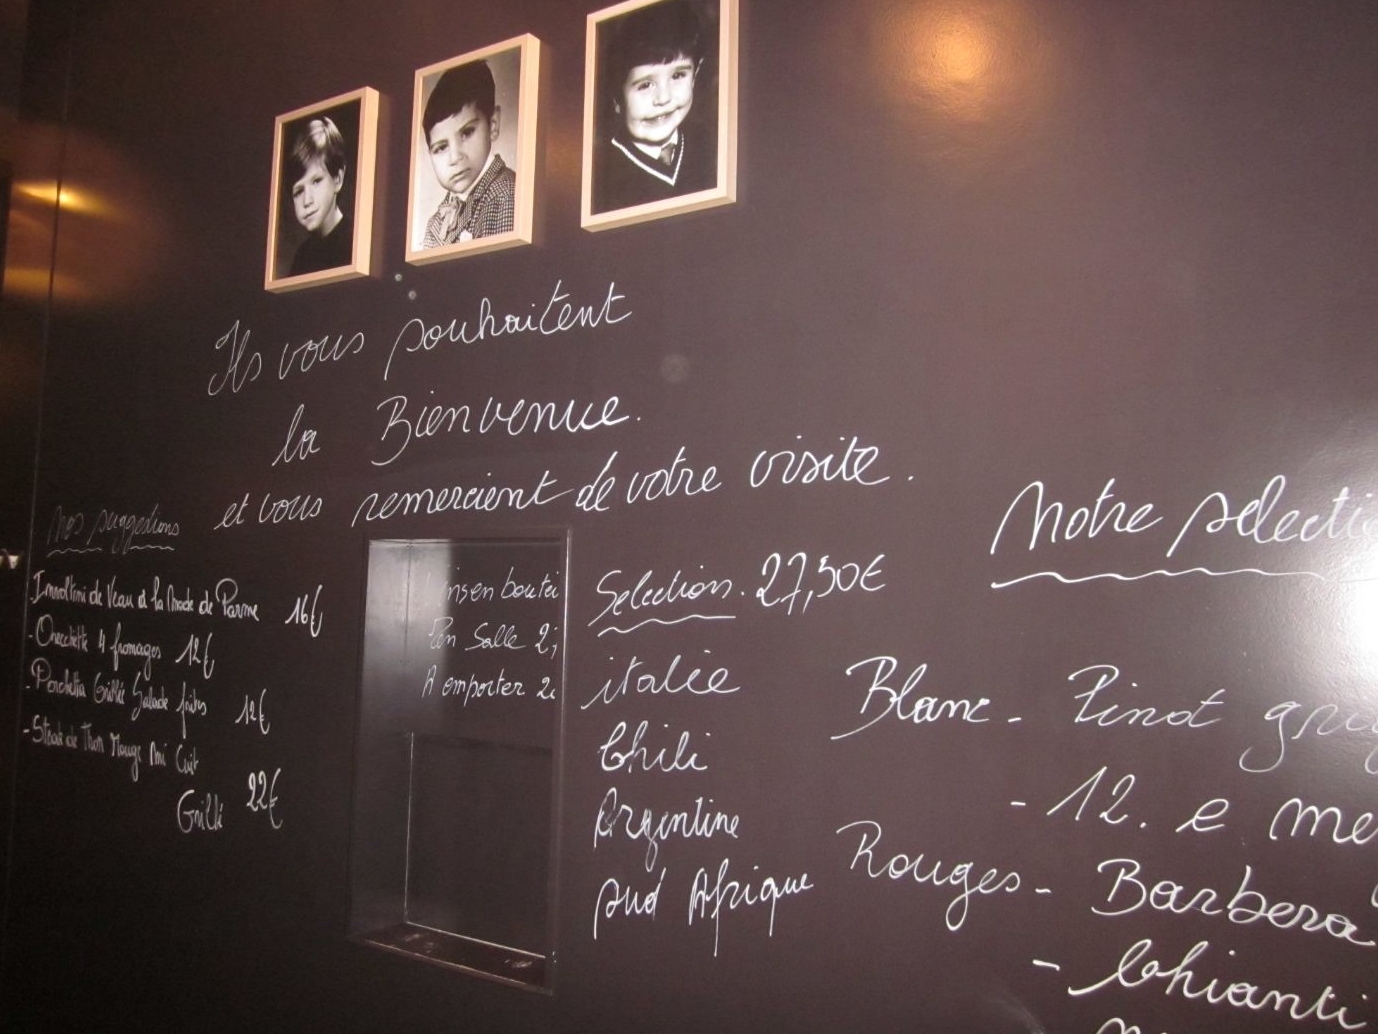 Ils vous souhaitent
la Bienvenue.
et vous remercient de votre visite.
nos suggestions
- Involtini de Veau à la Mode de Parme 16€
- Orecchiette 4 fromages 12€
- Porchetta Grillée Salade frites 12€
- Steak de Thon Rouge Mi Cuit
Grillé 22€
en boutei
En Salle 2
A emporter 2
Selection. 27,50€
italie
Chili
Argentine
sud Afrique
Notre selecti
Blanc - Pinot grig
- 12. e me
Rouges - Barbera
- Chianti